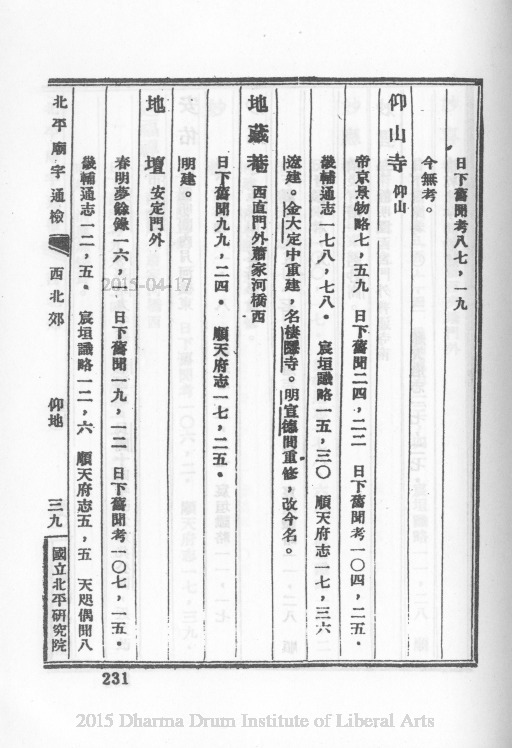 日下舊聞考八七，一九
今無考。
仰山寺 仰山
帝京景物略七，五九 日下舊聞二四，二二 日下舊聞考一〇四，二五。
畿輔通志一七八，七八。 宸垣識略一五，三〇 順天府志一七，三六
遼建。金大定中重建，名棲隱寺。明宣德間重修，改今名。
地藏菴 西直門外蕭家河橋西
日下舊聞九九，二四。 順天府志一七，二五。
明建。
地壇 安定門外
春明夢餘錄一六，一 日下舊聞一九，一二 日下舊聞考一〇七，一五。
畿輔通志一二，五。 宸垣識略一二，六 順天府志五，五 天咫偶聞八
北平廟宇通檢 西北郊 仰地 三九 國立北平研究院
231
2015-04-17
2015 Dharma Drum Institute of Liberal Arts